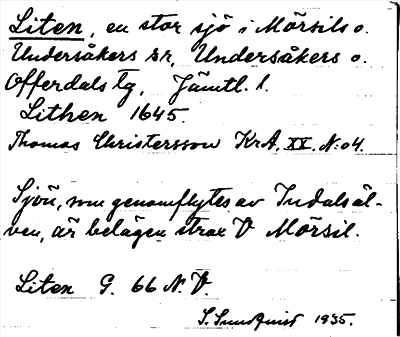 Liten, en stor sjö i Mörsils o.
Undersåkers sr, Undersåkers o.
Offerdals tg, Jämtl. l.
Lithen 1645.
Thomas Christersson KrA, XX. N:o 4.
Sjön, som genomflytes av Indalsäl-
ven, är belägen strax V Mörsil.
Liten G. 66 N. V.
S. Sundqvist 1935.